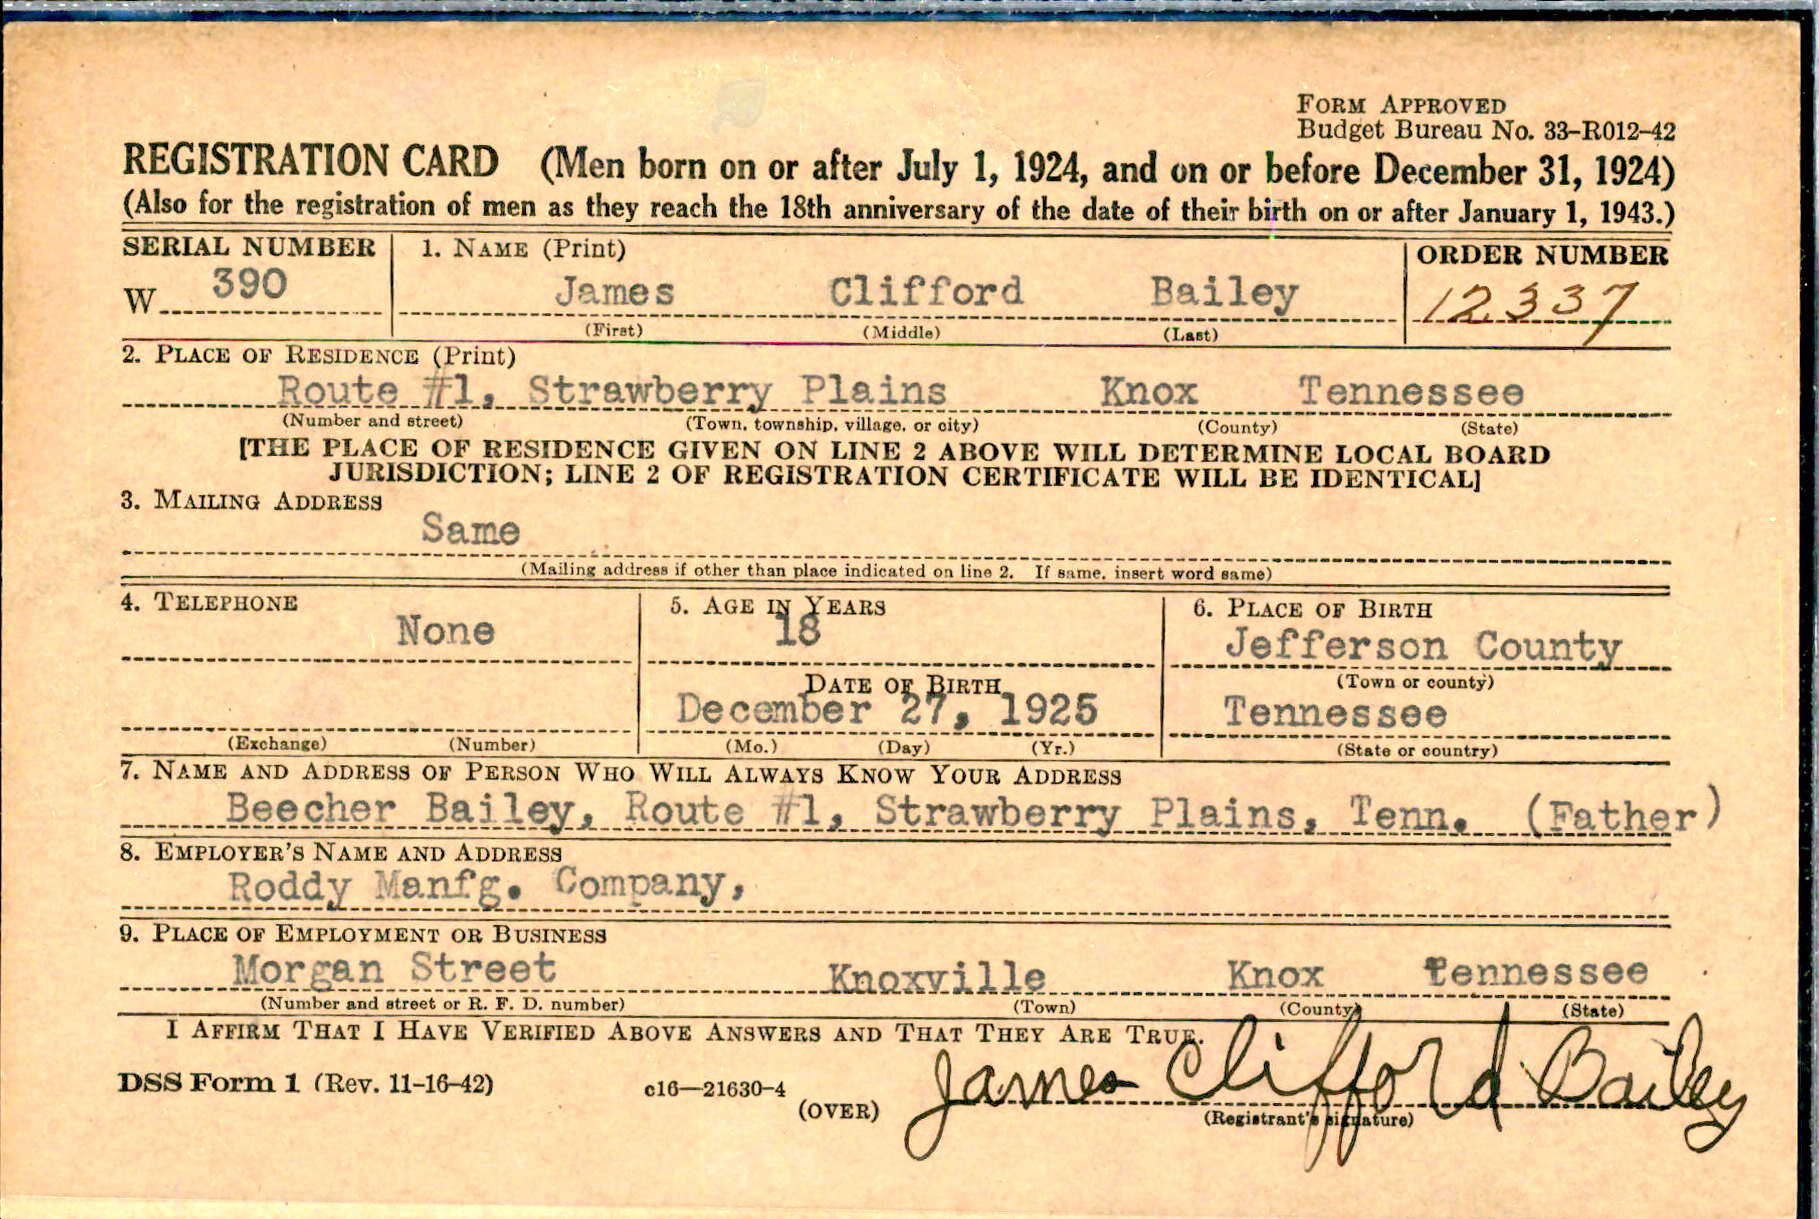 FORM APPROVED
Budget Bureau No. 33-R012-42
REGISTRATION CARD (Men born on or after July 1, 1924, and on or before December 31, 1924)
(Also for the registration of men as they reach the 18th anniversary of the date of their birth on or after January 1, 1943.)
SERIAL NUMBER 1. NAME (Print) ORDER NUMBER
W 390 James Clifford Bailey 12337
(First) (Middle) (Last)
2. PLACE OF RESIDENCE (Print)
Route #1, Strawberry Plains Knox Tennessee
(Number and street) (Town, township, village, or city) (County) (State)
[THE PLACE OF RESIDENCE GIVEN ON LINE 2 ABOVE WILL DETERMINE LOCAL BOARD
JURISDICTION; LINE 2 OF REGISTRATION CERTIFICATE WILL BE IDENTICAL]
3. MAILING ADDRESS
Same
(Mailing address if other than place indicated on line 2. If same, insert word same)
4. TELEPHONE 5. AGE IN YEARS 6. PLACE OF BIRTH
None 18 Jefferson County
DATE OF BIRTH (Town or county)
December 27, 1925 Tennessee
(Exchange) (Number) (Mo.) (Day) (Yr.) (State or country)
7. NAME AND ADDRESS OF PERSON WHO WILL ALWAYS KNOW YOUR ADDRESS
Beecher Bailey, Route #1, Strawberry Plains, Tenn. (Father)
8. EMPLOYER'S NAME AND ADDRESS
Roddy Manfg. Company,
9. PLACE OF EMPLOYMENT OR BUSINESS
Morgan Street Knoxville Knox Tennessee
(Number and street or R. F. D. number) (Town) (County) (State)
I AFFIRM THAT I HAVE VERIFIED ABOVE ANSWERS AND THAT THEY ARE TRUE.
DSS Form 1 (Rev. 11-16-42) c16—21630-4 (OVER) James Clifford Bailey
(Registrant's signature)